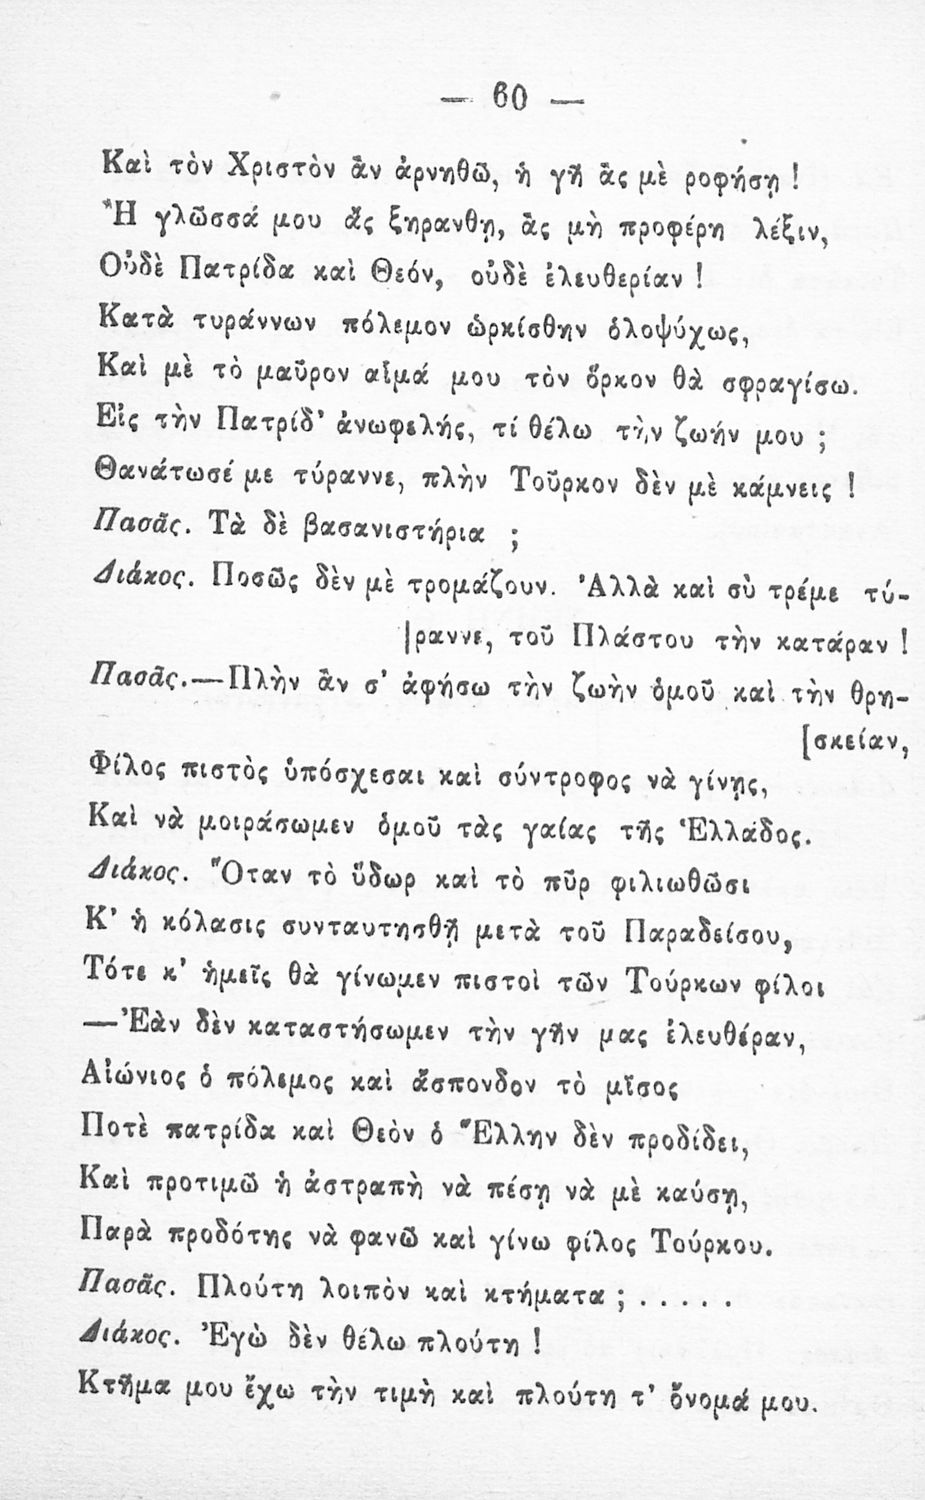 — 60 —
Καὶ τὸν Χριστὸν ἂν ἀρνηθῶ, ἡ γῆ ἂς μὲ ροφήσῃ !
Ἢ γλῶσσά μου ἂς ξηρανθῃ, ἂς μὴ προφέρη λέξιν,
Οὐδὲ Πατρίδα καὶ Θεόν, οὐδὲ ἐλευθερίαν !
Κατὰ τυράννων πόλεμον ὡρκίσθην ὁλοψύχως,
Καὶ μὲ τὸ μαῦρον αἷμά μου τὸν ὅρκον θὰ σφραγίσω.
Εἰς τὴν Πατρίδ' ἀνωφελής, τί θέλω τὴν ζωήν μου ;
Θανάτωσέ με τύραννε, πλὴν Τοῦρκον δὲν μὲ κάμνεις !
Πασᾶς. Τὰ δὲ βασανιστήρια ;
Διάκος. Ποσῶς δὲν μὲ τρομάζουν. Ἀλλὰ καὶ σὺ τρέμε τύ-
[ραννε, τοῦ Πλάστου τὴν κατάραν !
Πασᾶς.—Πλὴν ἂν σ' ἀφήσω τὴν ζωὴν ὁμοῦ καὶ τὴν θρη-
[σκείαν,
Φίλος πιστὸς ὑπόσχεσαι καὶ σύντροφος νὰ γίνῃς,
Καὶ νὰ μοιράσωμεν ὁμοῦ τὰς γαίας τῆς Ἑλλάδος.
Διάκος. Ὅταν τὸ ὕδωρ καὶ τὸ πῦρ φιλιωθῶσι
Κ' ἡ κόλασις συνταυτησθῇ μετὰ τοῦ Παραδείσου,
Τότε κ' ἡμεῖς θὰ γίνωμεν πιστοὶ τῶν Τούρκων φίλοι
—Ἐὰν δὲν καταστήσωμεν τὴν γῆν μας ἐλευθέραν,
Αἰώνιος ὁ πόλεμος καὶ ἄσπονδον τὸ μῖσος
Ποτὲ πατρίδα καὶ Θεὸν ὁ Ἕλλην δὲν προδίδει,
Καὶ προτιμῶ ἡ ἀστραπὴ νὰ πέσῃ νὰ μὲ καύσῃ,
Παρὰ προδότης νὰ φανῶ καὶ γίνω φίλος Τούρκου.
Πασᾶς. Πλούτη λοιπὸν καὶ κτήματα ; . . . . .
Διάκος. Ἐγὼ δὲν θέλω πλούτη !
Κτῆμα μου ἔχω τὴν τιμὴ καὶ πλούτη τ' ὄνομά μου.